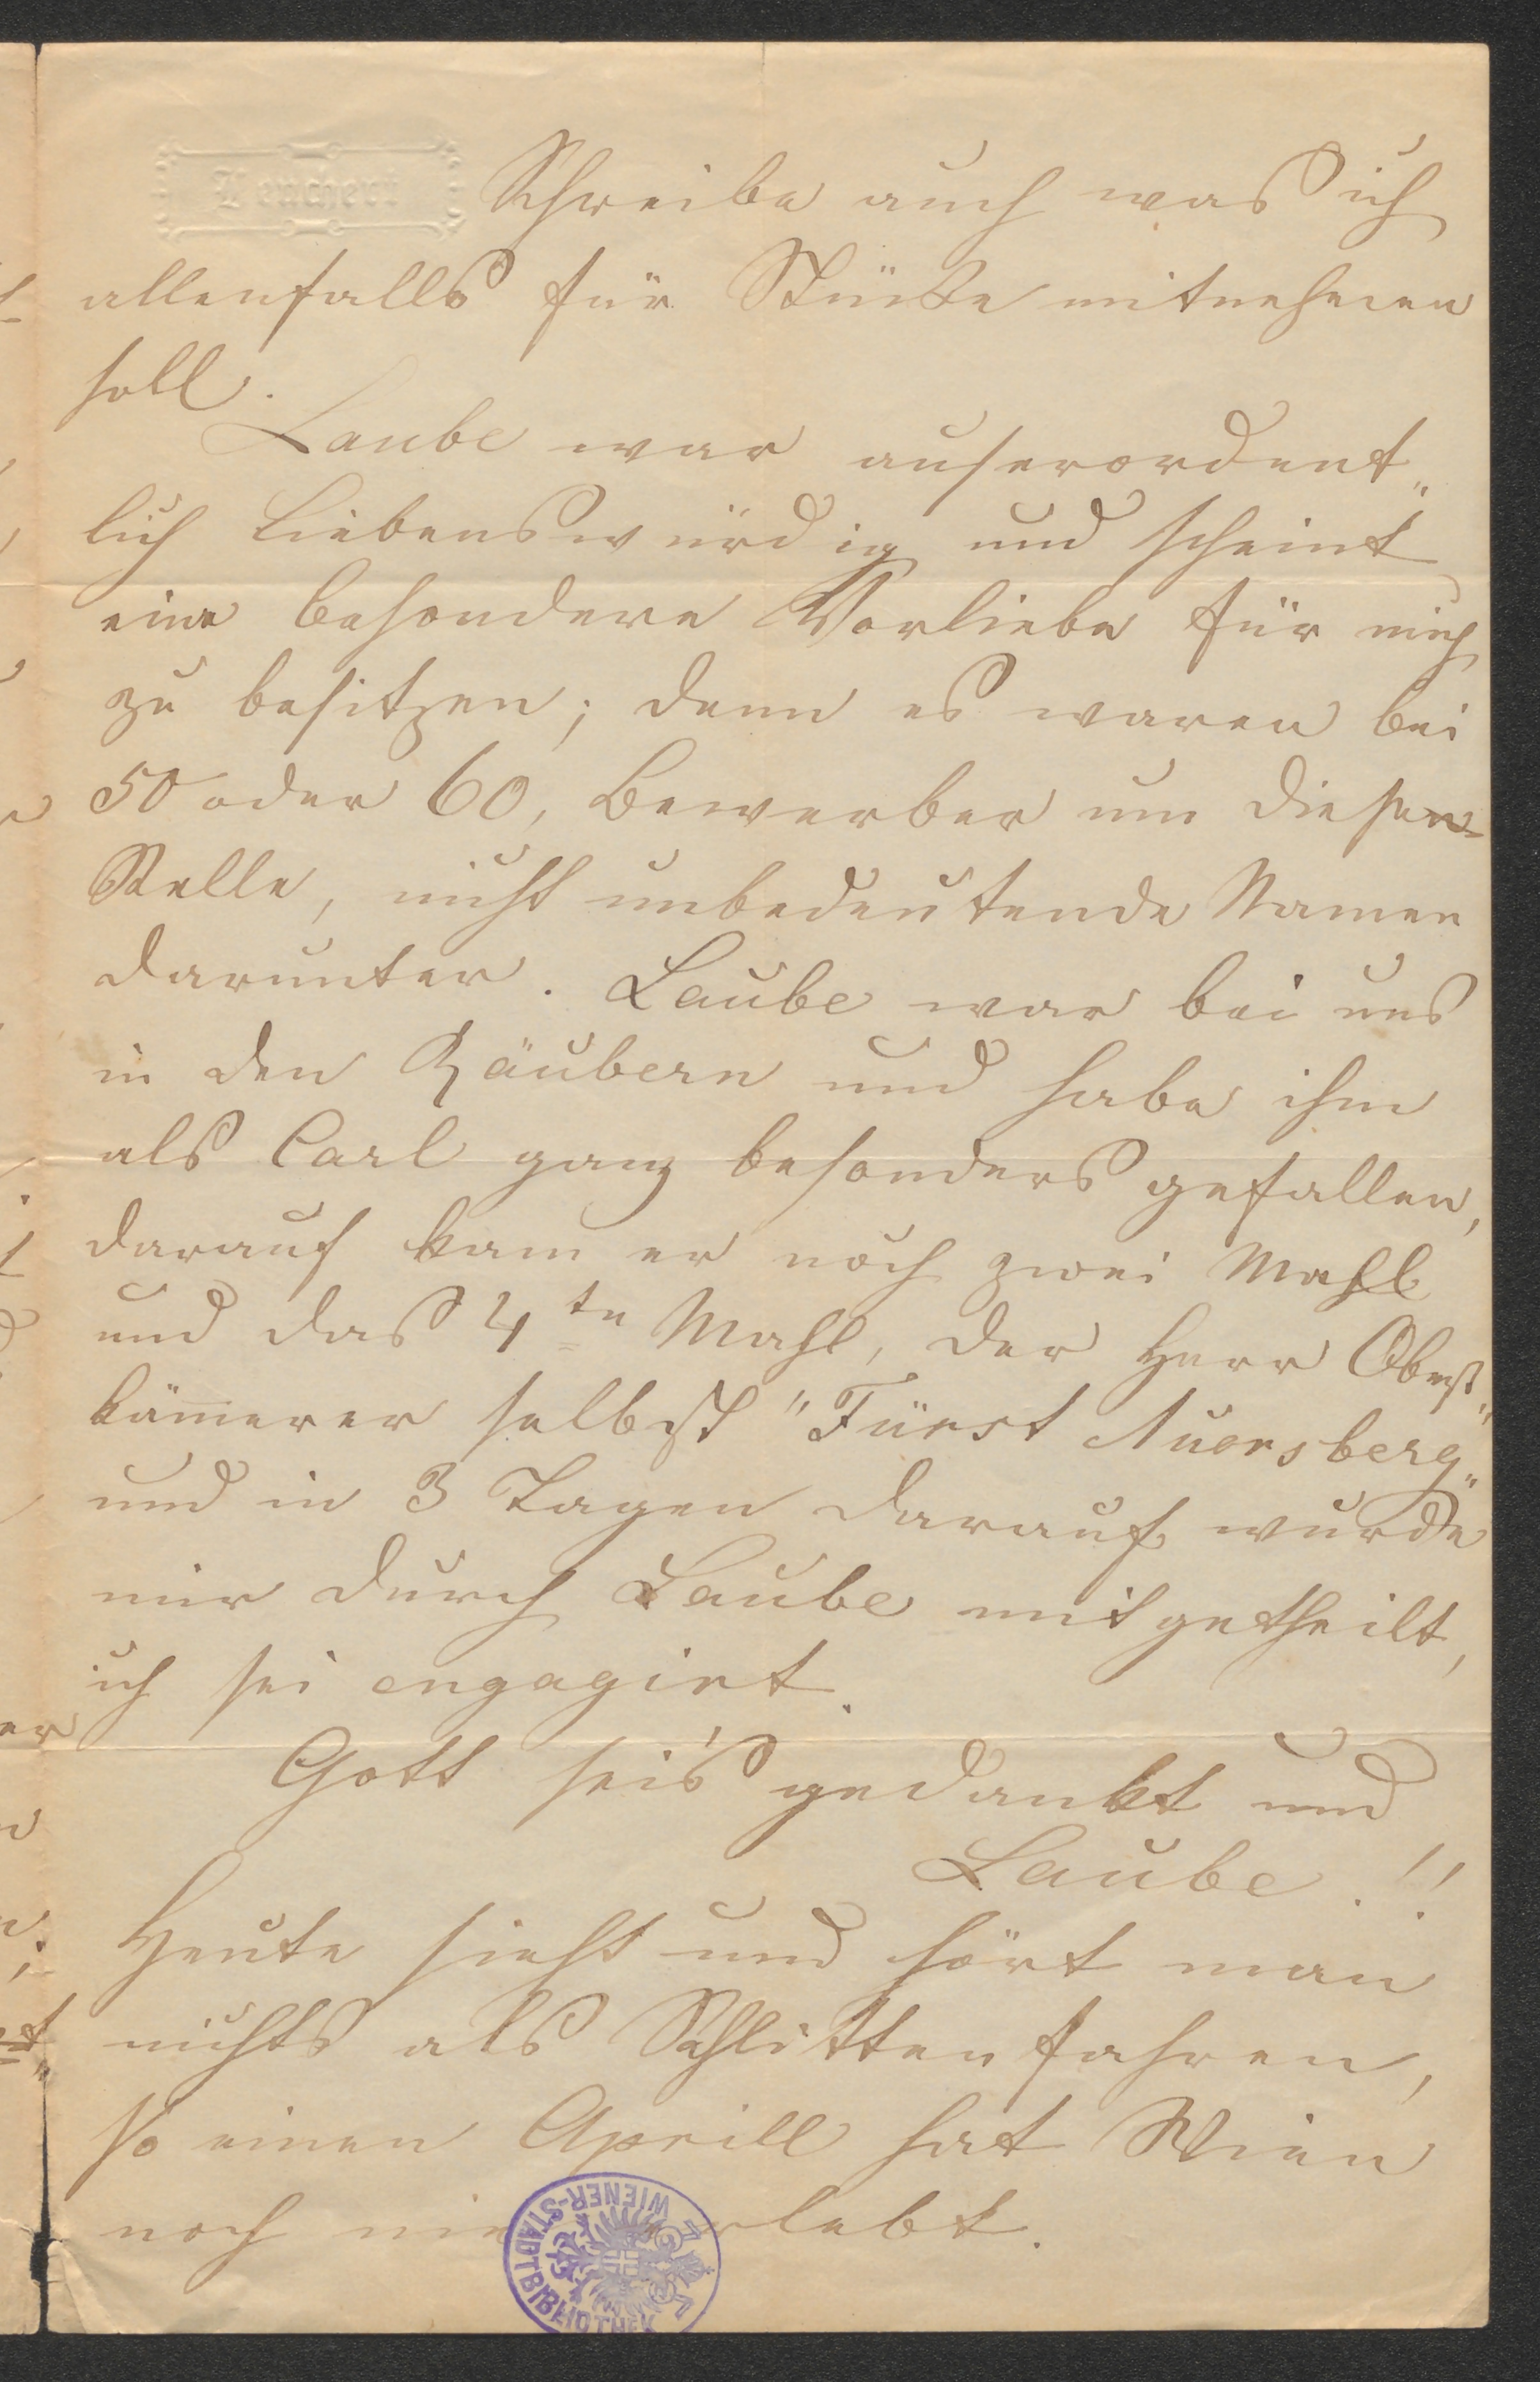 Schreibe auch was ich
allenfalls für Stücke mitnehmen
soll.
Laube war auserordent„
lich liebenswürdig und scheint
eine besondere Vorliebe für mich
zu besitzen; denn es waren bei
50 oder 60, Bewerber um diese
Stelle, nicht unbedeutende Namen
darunter. Laube war bei uns
in den Räubern und habe ihm
als Carl ganz besonders gefallen,
darauf kam er noch zwei Mahl
und das 4te Mahl, der Herr Oberst„
kämerer selbst "Fürst Auersberg"
und in 3 Tagen darauf wurde
mir durch Laube mitgetheilt,
ich sei engagirt.
Gott sei's gedankt und
Laube.!!
Heute sieht und hört man
nichts als Schlittenfahren,
so einen Aprill hat Wien
noch nie erlebt.
WIENER-STADTBIBLIOTHEK